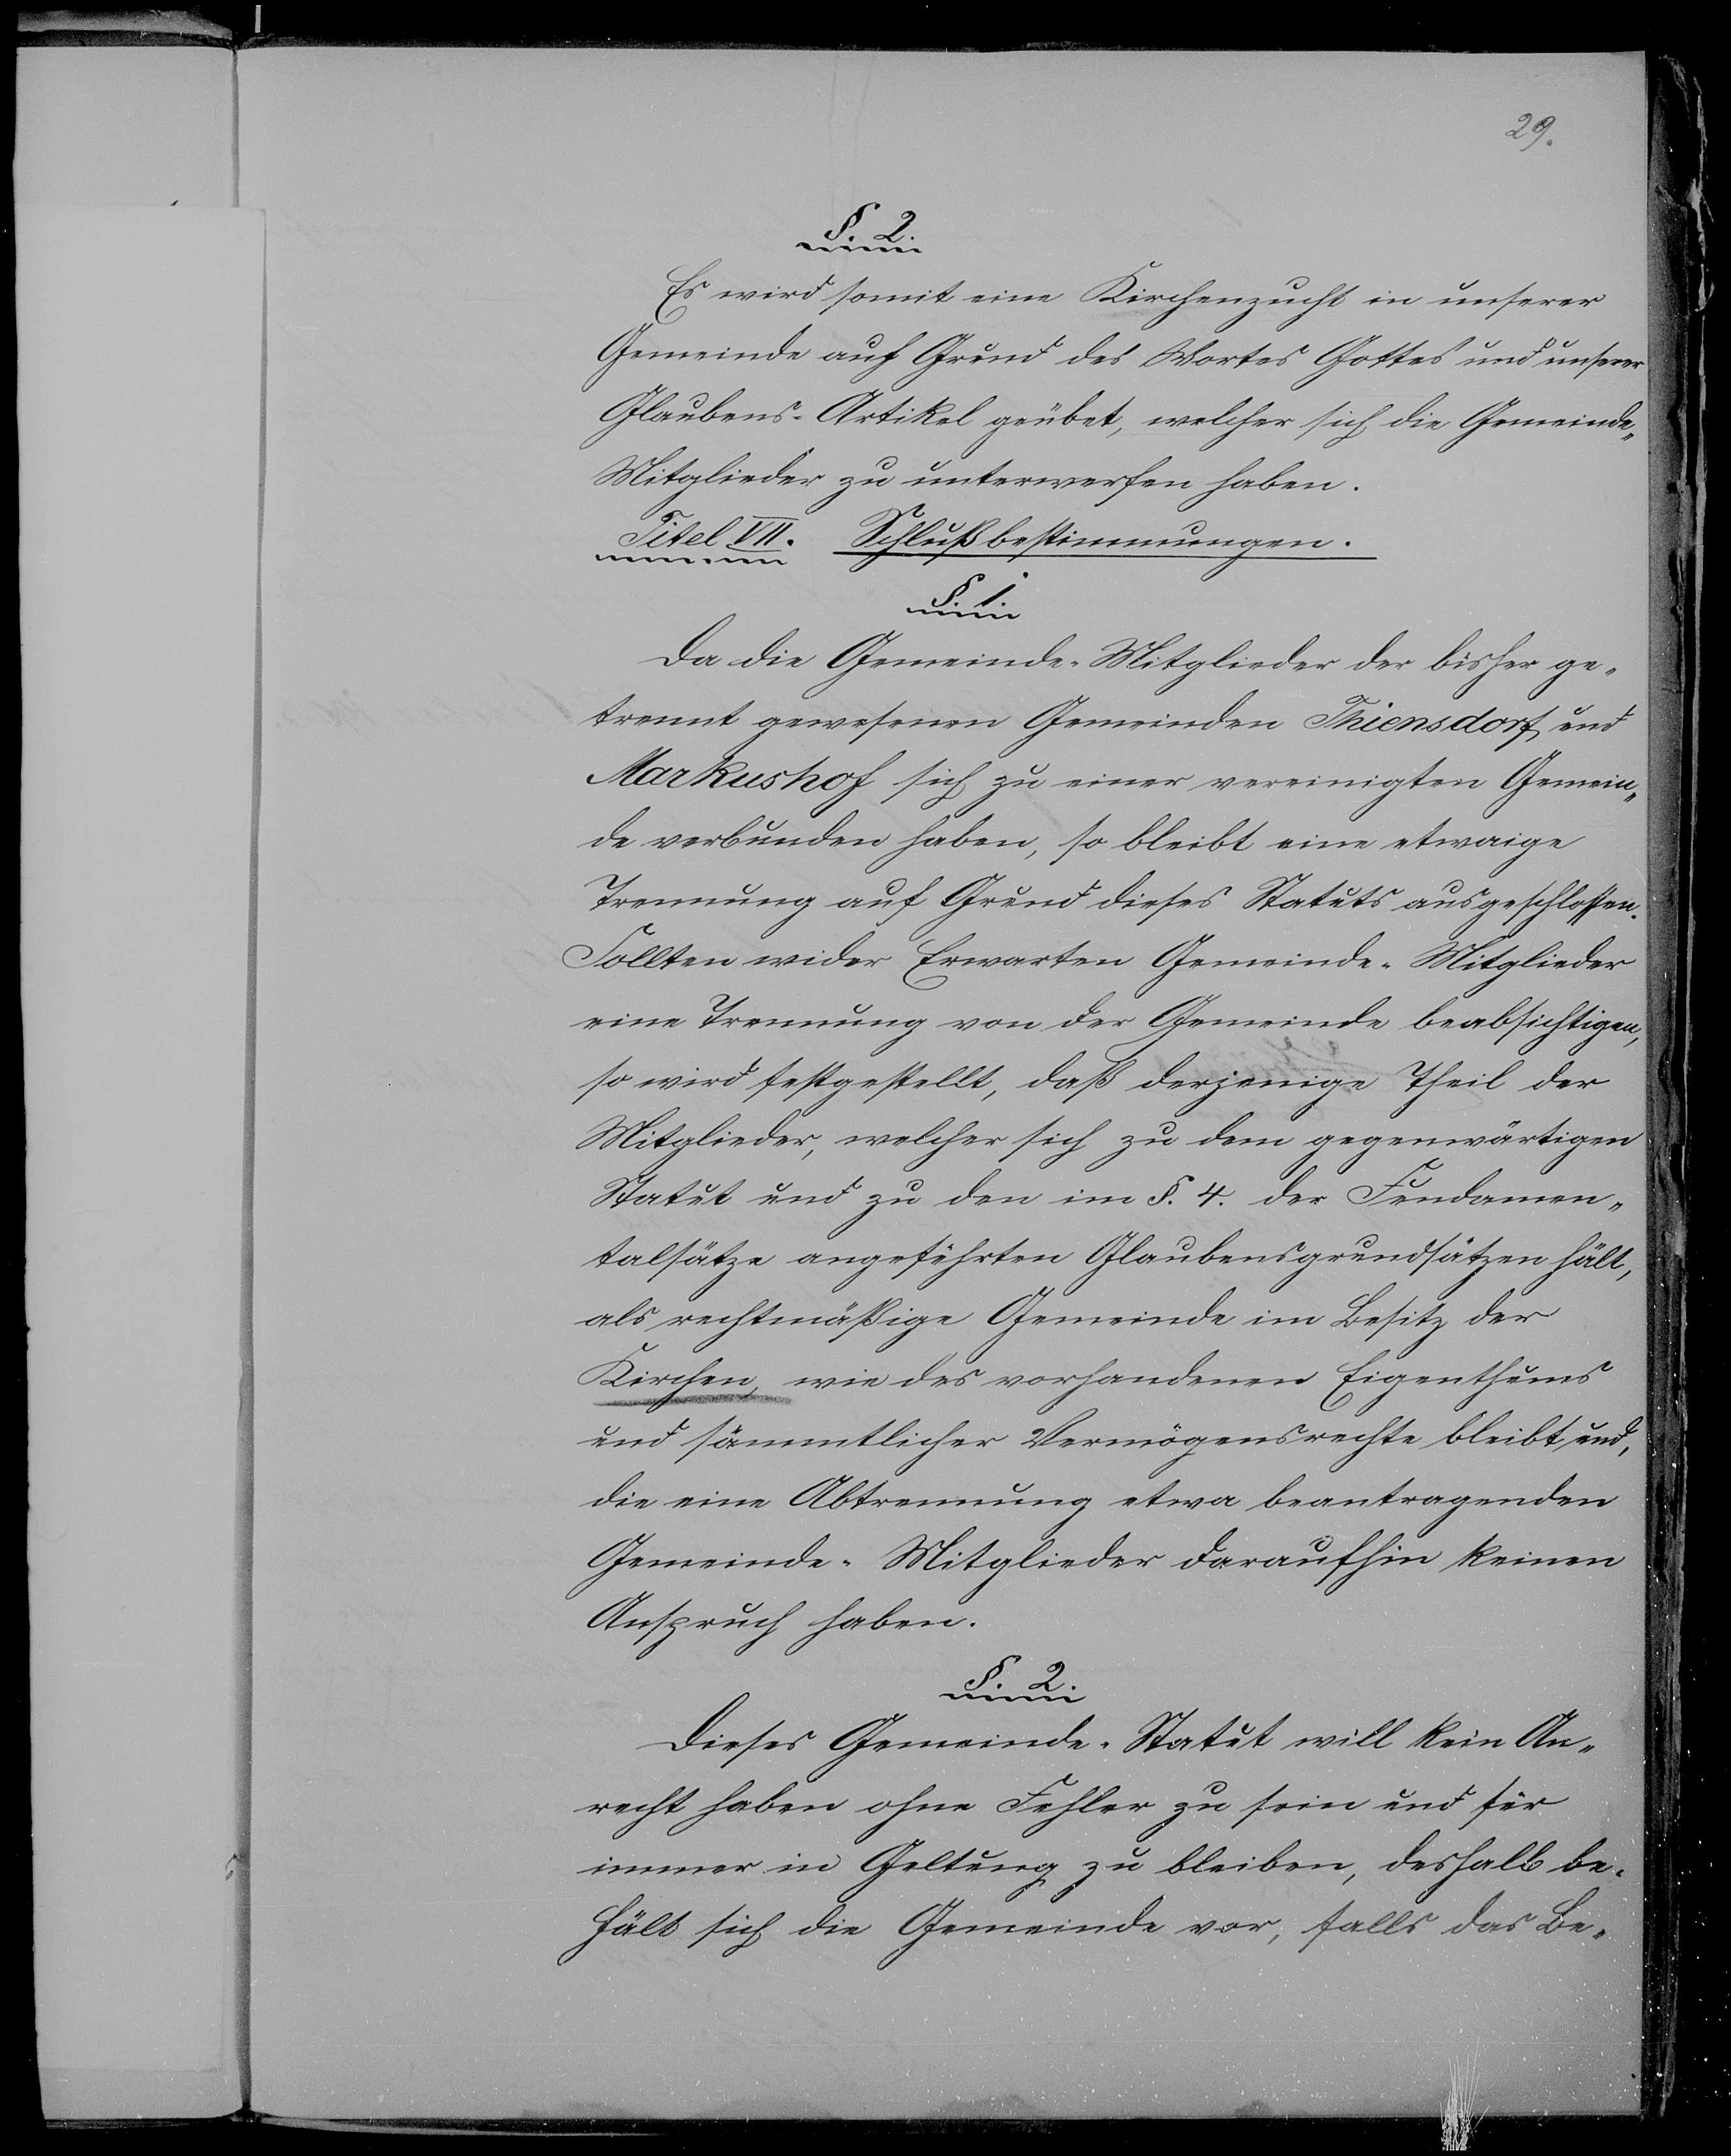 29.
§. 2.
Es wird somit eine Kirchenzucht in unserer
Gemeinde auf Grund des Wortes Gottes und unserer
Glaubens-Artikel geübet, welcher sich die Gemeinde-
Mitglieder zu unterwerfen haben.
Titel VII. Schlußbestimmungen.
§. 1.
Da die Gemeinde-Mitglieder der bisher ge-
trennt gewesenen Gemeinden Thiensdorf und
Markushof sich zu einer vereinigten Gemein-
de verbunden haben, so bleibt eine etwaige
Trennung auf Grund dieses Statuts ausgeschlossen.
Sollten wider Erwarten Gemeinde-Mitglieder
eine Trennung von der Gemeinde beabsichtigen,
so wird festgestellt, daß derjenige Theil der
Mitglieder, welcher sich zu dem gegenwärtigen
Statut und zu den im §. 4. der Fundamen-
talsätze angeführten Glaubensgrundsätzen hält,
als rechtmäßige Gemeinde im Besitz der
Kirchen, wie des vorhandenen Eigenthums
und sämmtlicher Vermögensrechte bleibt und,
die eine Abtrennung etwa beantragenden
Gemeinde-Mitglieder daraufhin keinen
Anspruch haben.
§. 2.
Dieses Gemeinde-Statut will kein An-
recht haben ohne Fehler zu sein und für
immer in Geltung zu bleiben, deshalb be-
hält sich die Gemeinde vor, falls das Be-